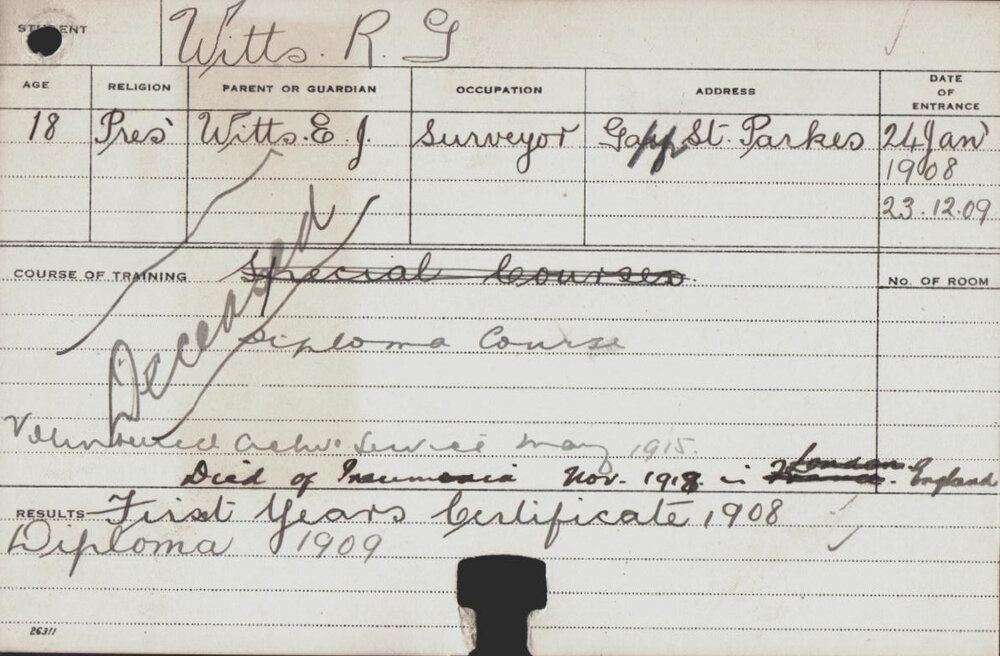 STUDENT Witts. R. G
AGE RELIGION PARENT OR GUARDIAN OCCUPATION ADDRESS DATE OF ENTRANCE
18 Pres' Witts. E. J. Surveyor St. Parkes 24 Jan' 1908
23.12.09
COURSE OF TRAINING Special Courses No. OF ROOM
Deceased
Diploma Course
Volunteered Active Service May 1915.
Died of Pneumonia Nov. 1918. in London. England
RESULTS First Years Certificate 1908
Diploma 1909
26311